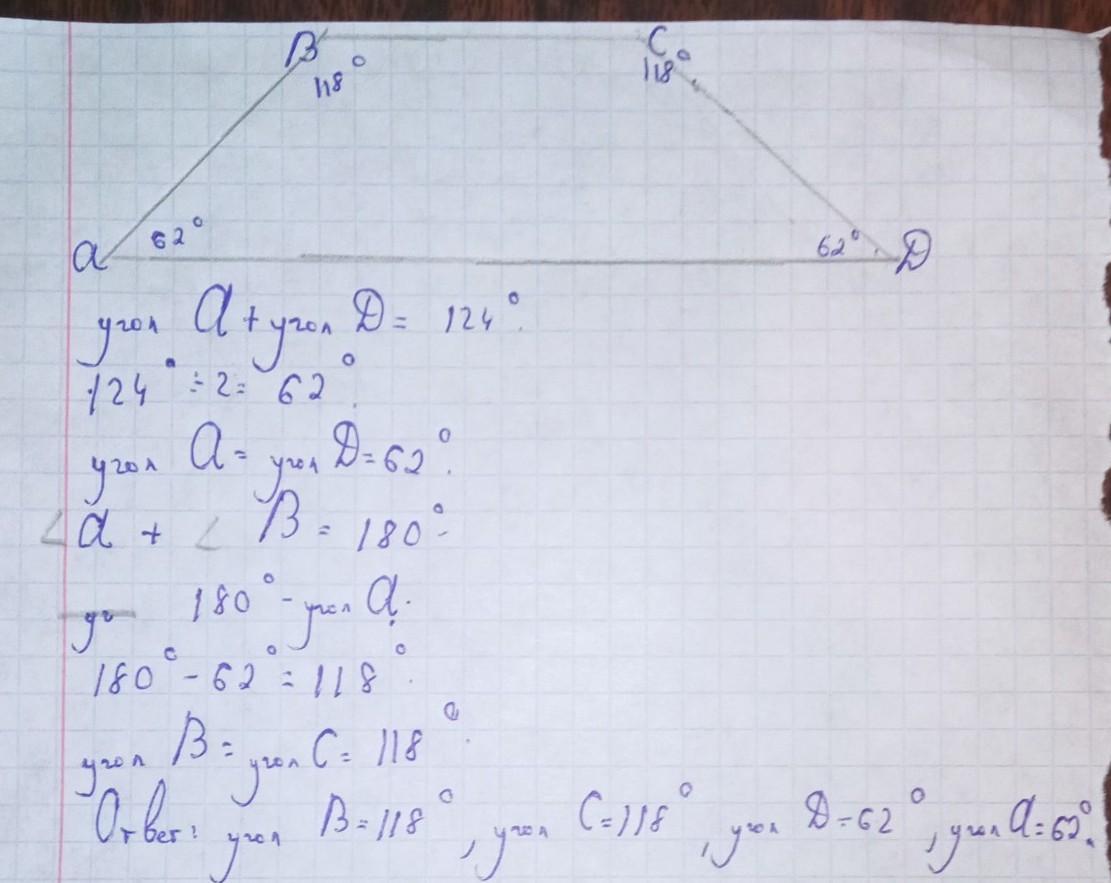 B C
118° 118°
62° 62°
a D
угол a + угол D = 124°.
124° ÷ 2 = 62°.
угол a = угол D = 62°.
∠ a + ∠ B = 180°
уг 180° - угол a.
180° - 62° = 118°.
угол B = угол C = 118°.
Ответ: угол B = 118°, угол C = 118°, угол D = 62°, угол a = 62°.